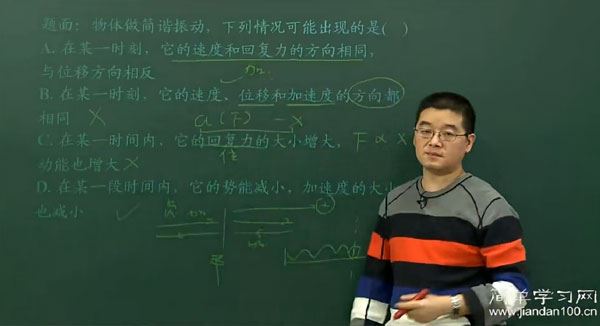 题面：物体做简谐振动，下列情况可能出现的是( )
A. 在某一时刻，它的速度和回复力的方向相同，
与位移方向相反
B. 在某一时刻，它的速度、位移和加速度的方向都
相同 X
a(F) -x
C. 在某一时间内，它的回复力的大小增大， F ∝ X
动能也增大 X
位
D. 在某一段时间内，它的势能减小，加速度的大小
也减小 ✓
平
简单学习网
www.jiandan100.cn